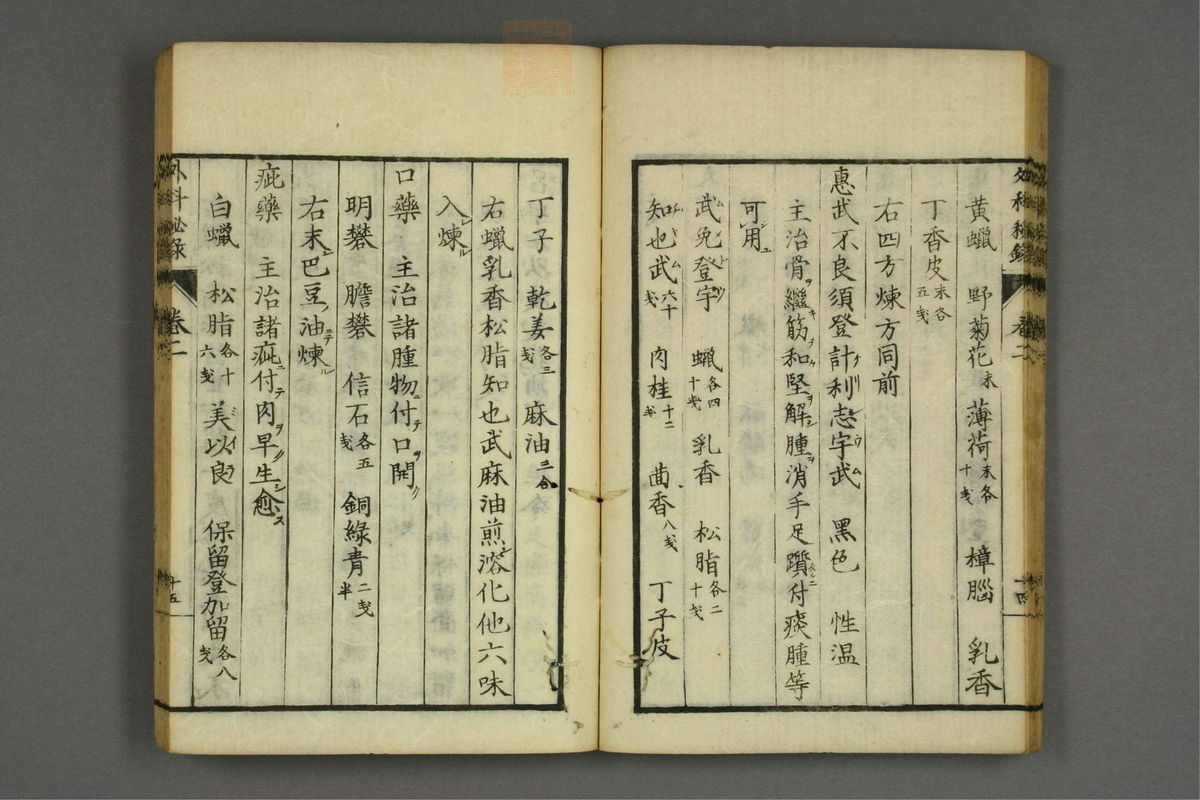 外科秘録
卷二
十四
黄蠟 野菊花末 薄荷末各十戔 樟腦 乳香
丁香皮末各五戔
右四方煉方同前
惠武不良須登計利志宇武 黑色 性温
主治骨ヲ繼キ筋ヲ和ケ堅ヲ解シ腫ヲ消手足躓ニ付痰腫等
可レ用ユ
武免登宇 蠟各四十戔 乳香 松脂各二十戔
知也武六十戔 肉桂十二戔 茴香八戔 丁子皮
丁子 乾姜各三戔 麻油二合
右蠟乳香松脂知也武麻油煎溶化他六味
入レ煉ル
口藥 主治諸腫物ニ付テ口ヲ開ク
明礬 膽礬 信石各五戔 銅綠青二戔半
右末シ巴豆ノ油ニテ煉ル
疵藥 主治諸疵ニ付テ肉ヲ早ク生シ愈ス
白蠟 松脂各十六戔 美以良 保留登加留各八戔
外科秘録
卷二
十五